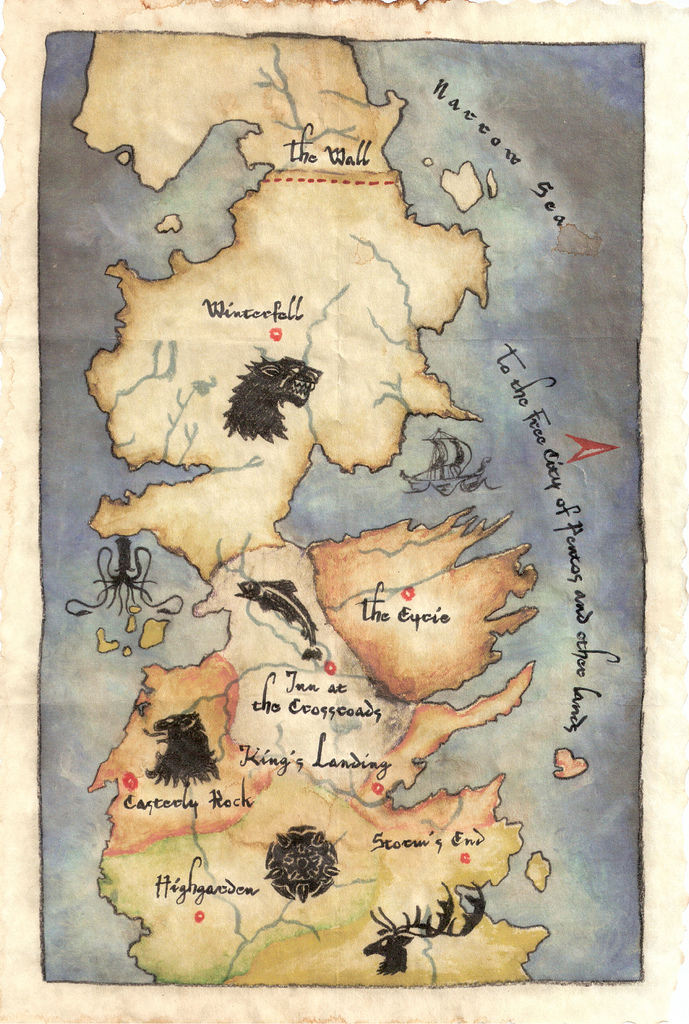 Narrow Sea
the Wall
Winterfell
To the Free City of Pentos, and other lands
the Eyrie
Inn at
the Crossroads
King's Landing
Casterly Rock
Storm's End
Highgarden